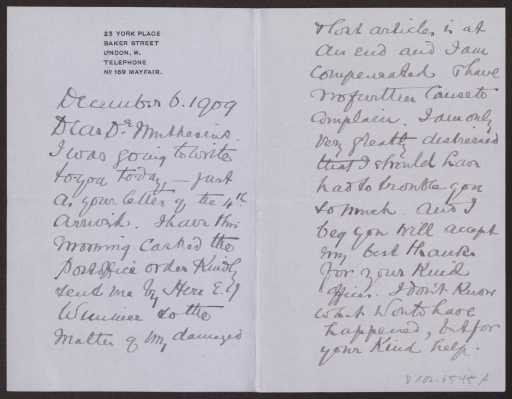 23 YORK PLACE
BAKER STREET
LONDON, W.
TELEPHONE
No 169 MAYFAIR.
December 6. 1909
Dear Dr Muthesius.
I was going to write
to you today – just
as your letter of the 4th
arrived. I have this
morning cashed the
Post office order kindly
sent me by Herr E. G
so the
matter of my damaged
& lost articles is at
an end and I am
compensated I have
no further cause to
complain. I am only
very greatly distressed
that I should have
had to trouble you
so much. And I
beg you will accept
my best thanks
for your kind
offices. I don't know
what would have
happened, but for
your kind help.